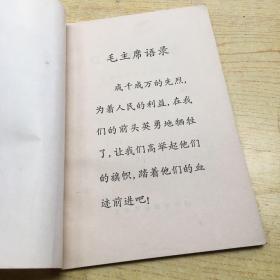 毛主席语录
成千成万的先烈，
为着人民的利益，在我
们的前头英勇地牺牲
了，让我们高举起他们
的旗帜，踏着他们的血
迹前进吧！